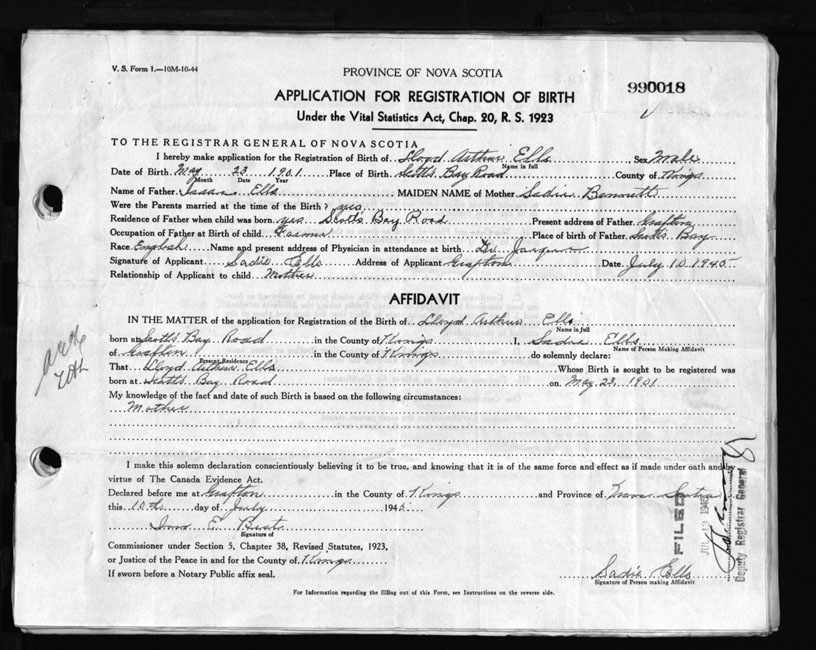 V. S. Form 1.—10M-10-44
PROVINCE OF NOVA SCOTIA
990018
APPLICATION FOR REGISTRATION OF BIRTH
Under the Vital Statistics Act, Chap. 20, R. S. 1923
TO THE REGISTRAR GENERAL OF NOVA SCOTIA
I hereby make application for the Registration of Birth of Lloyd Arthur Ells Sex Male
Name in full
Date of Birth May 23 1901 Place of Birth Scotts Bay Road County of Kings
Month Date Year
Name of Father Isaac Ells MAIDEN NAME of Mother Sadie Bennett
Were the Parents married at the time of the Birth? yes
Residence of Father when child was born yes Scotts Bay Road Present address of Father Grafton
Occupation of Father at Birth of child Farmer Place of birth of Father Scotts Bay
Race English Name and present address of Physician in attendance at birth Dr.
Signature of Applicant Sadie Ells Address of Applicant Grafton Date July 10 1945
Relationship of Applicant to child Mother
AFFIDAVIT
IN THE MATTER of the application for Registration of the Birth of Lloyd Arthur Ells
Name in full
born at Scotts Bay Road in the County of Kings I, Sadie Ells
Name of Person Making Affidavit
of Grafton in the County of Kings do solemnly declare:
Present Residence
That Lloyd Arthur Ells Whose Birth is sought to be registered was
born at Scotts Bay Road on May 23 1901
My knowledge of the fact and date of such Birth is based on the following circumstances:
Mother
I make this solemn declaration conscientiously believing it to be true, and knowing that it is of the same force and effect as if made under oath and by
virtue of The Canada Evidence Act.
Declared before me at Grafton in the County of Kings and Province of Nova Scotia
this 10th day of July 1945
E.
Signature of
Commissioner under Section 5, Chapter 38, Revised Statutes, 1923,
or Justice of the Peace in and for the County of Kings
If sworn before a Notary Public affix seal.
Sadie Ells
Signature of Person making Affidavit
For Information regarding the filling out of this Form, see Instructions on the reverse side.
FILED
JUL 13 1945
Deputy Registrar General